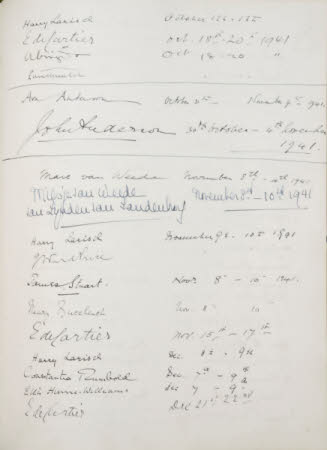 Harry Larisch October 12th - 15th
E de Cartier Oct. 18th - 20th 1941
Oct 18 - 20 "
Ava Anderson October 31st - November 4th 1941.
John Anderson 30th October - 4th November 1941.
Marc van Weede November 8th - 10th 1941
van Weede November 8th - 10th 1941
van Lynden van Sandenburg
Harry Larisch November 9th - 10th 1941
James Stuart Nov. 8th - 10th 1941.
Mary Buccleuch Nov 8 10
E de Cartier Nov. 15th - 17th
Harry Larisch Dec. 8th - 9th
Constantia Rumbold Dec. 7th - 9th
Edith Hume-Williams Dec 7 - 9th
E de Cartier Dec 21st 22nd